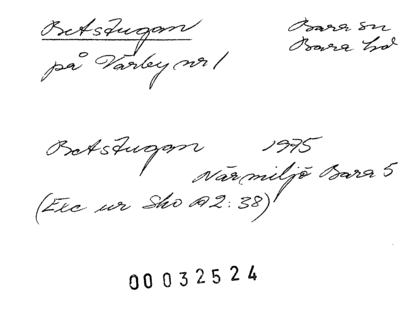 Betstugan Bara sn
på Värby nr 1 Bara hd
Betstugan 1975
Närmiljö Bara 5
(Exc ur Sko A2:38)
00032524